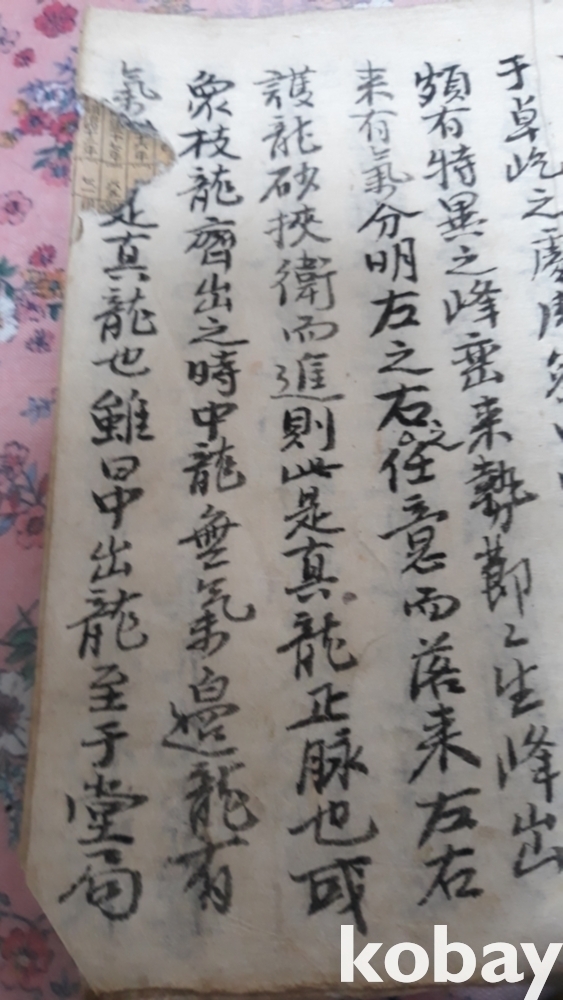 于卓屹之處
頗有特異之峰巒来勢節〻生峰出
来有氣分明左之右之任意而落来左右
護龍砂挾衛而進則此是真龍正脉也或
衆枝龍齊出之時中龍無氣邊龍有
氣 是真龍也雖曰中出龍至于堂局
kobay